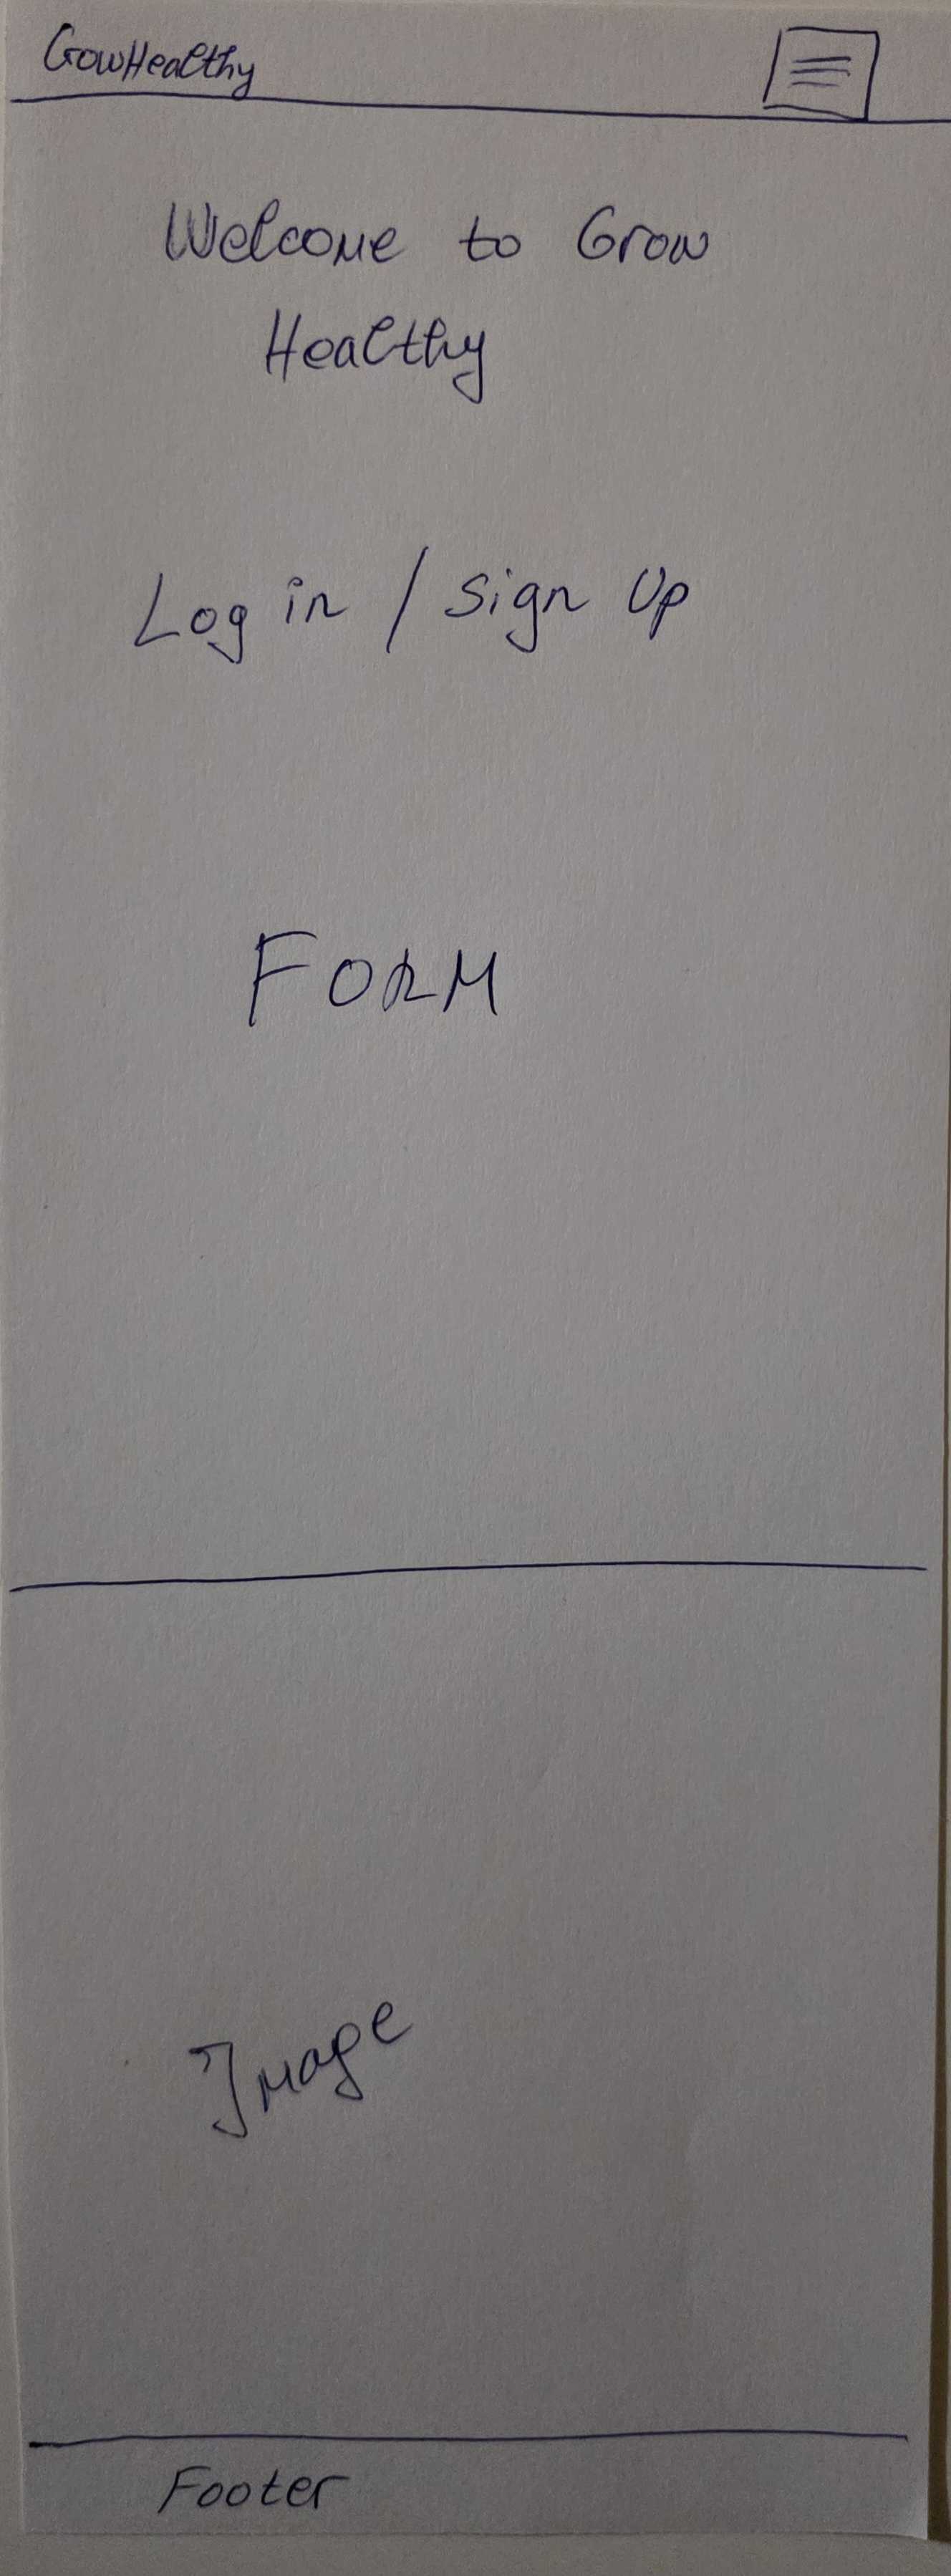 GrowHealthy
Welcome to Grow
Healthy
Log in / Sign Up
FORM
Image
Footer